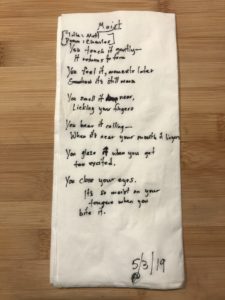 Moist
You touch it gently—
It returns to form
You feel it, moments later
it's still warm
You smell it near,
Licking your fingers
You hear it calling—
When it's near your mouth it lingers
You glaze it when you get
too excited.
You close your eyes.
It's so moist on your
tongue when you
bite it.
5/3/19